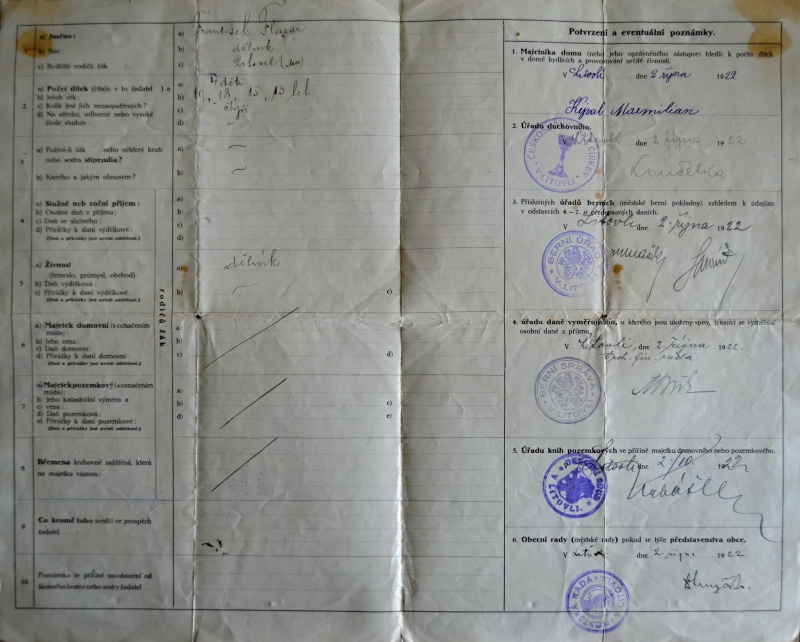 a) Jméno :
a) František Flasar
1 b) Stav :
b) dělník
c) Bydliště rodičů žák
c) Litovel
a) Počet dítek (čítajíc v to žadatel ) a
a)
2 b) jejich věk :
b) 19, 18, 15, 13 let
c) Kolik jest jich nezaopatřených?
c)
d) Na střední, odborné nebo vysoké
škole studuje :
d) —
3 a) Požívá-li žák nebo některý bratr
nebo sestra stipendia?
a) —
b) Kterého a jakým obnosem?
b) —
a) Služné neb roční příjem:
a)
4 b) Osobní daň z příjmu:
b)
c) Daň ze služného:
c)
d) Přirážky k dani výdělkové:
d)
(Daň a přirážky jest uvésti odděleně.)
a) Živnost
(řemeslo, průmysl, obchod):
a) dělník
5 b) Daň výdělková:
c) Přirážky k dani výdělkové:
b) — c)
(Daň a přirážky jest uvésti odděleně.)
rodičů žák
6 a) Majetek domovní (s označením
místa):
a)
b) Jeho cena:
b)
c) Daň domovní:
c) d)
d) Přirážky k dani domovní:
(Daň a přirážky jest uvésti odděleně.)
7 a) Majetek pozemkový (s označením
místa):
a)
b) jeho katastrální výměra a
b) c)
c) cena:
d) Daň pozemková:
d) e)
e) Přirážky k dani pozemkové:
(Daň a přirážky jest uvésti odděleně.)
8 Břemena knihovně zajištěná, která
na majetku váznou:
9 Co kromě toho svědčí ve prospěch
žadatel :
10 Poznámka se příčině osvobození od
školného bratra nebo sestry žadatel
Potvrzení a eventuální poznámky.
1. Majetníka domu (nebo jeho oprávněného zástupce) hledíc k počtu dítek
v domě bydlících a provozování určité živnosti.
V Litovli dne 2 října 1922
Kýval Maxmilian
2. Úřadu duchovního.
V Litovli dne 2 října 1922
Koudelka
V LITOVLI
3. Příslušných úřadů berních (městské berní pokladny) vzhledem k údajům
v odstavcích 4.–7. o předepsaných daních.
V Litovli dne 2. října 1922
BERNÍ ÚŘAD
V LITOVLI
4. úřadu daně vyměřujícího, u kterého jsou uloženy spisy, týkající se vyměření
osobní daně z příjmu.
V Litovli dne 2 října 1922
Vrch. fin. rada
BERNÍ SPRÁVA
V LITOVLI
5. Úřadu knih pozemkových ve příčině majetku domovního nebo pozemkového.
V Litovli dne 2/10 1922
V LITOVLI.
6. Obecní rady (městské rady) pokud se týče představenstva obce.
V dne 2 října 1922
MĚSTSKÁ RADA